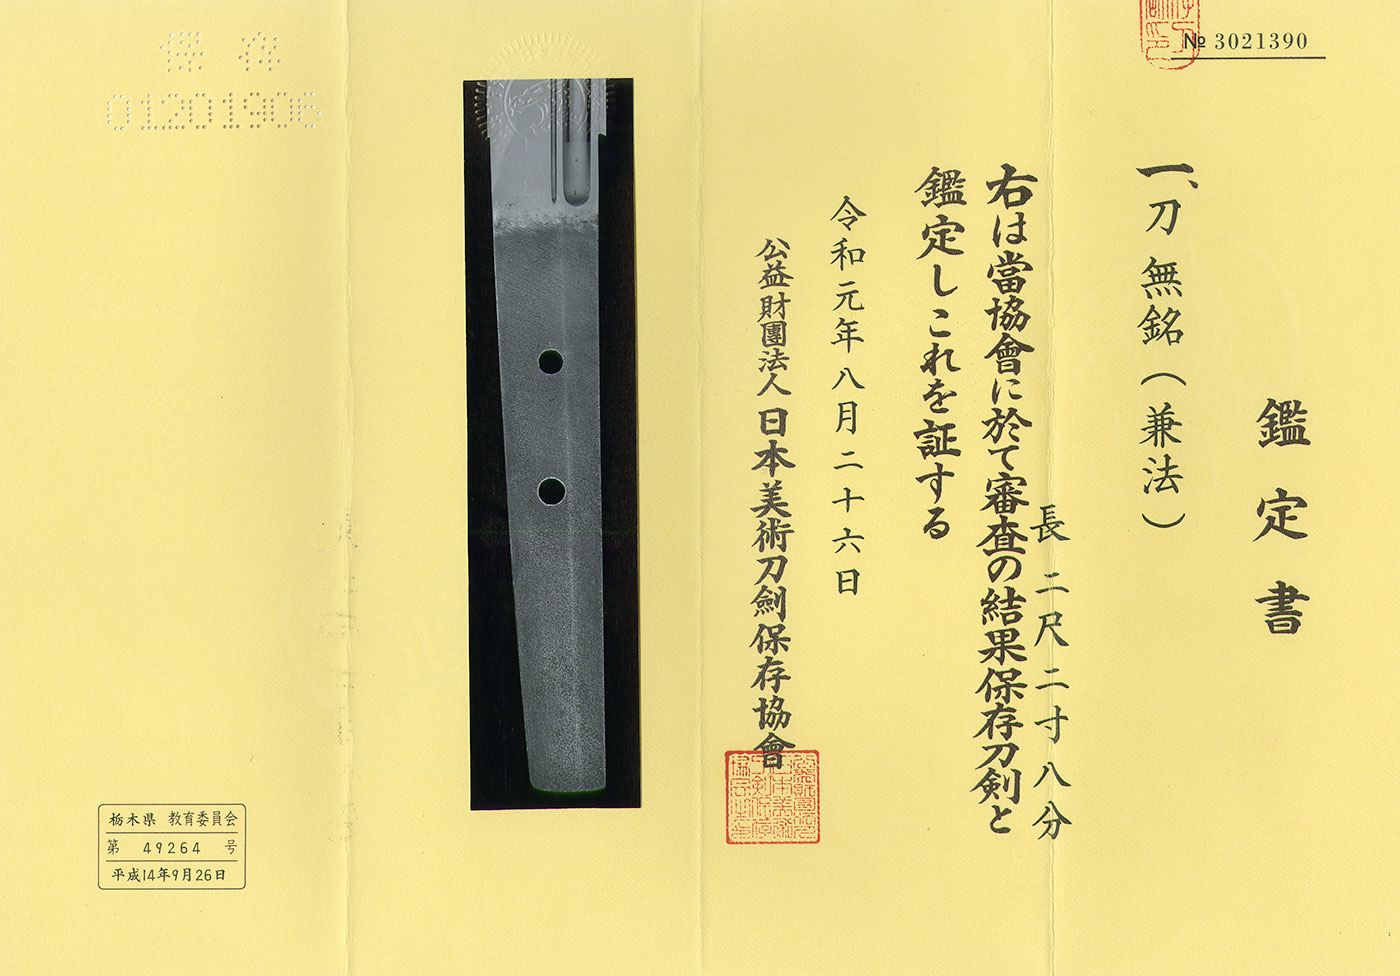 № 3021390
鑑定書
一、刀 無銘（兼法）
長 二尺二寸八分
右は當協會に於て審査の結果保存刀剣と
鑑定しこれを証する
令和元年八月二十六日
公益財團法人 日本美術刀劍保存協會
保存
01201906
栃木県 教育委員会
第 49264 号
平成14年9月26日